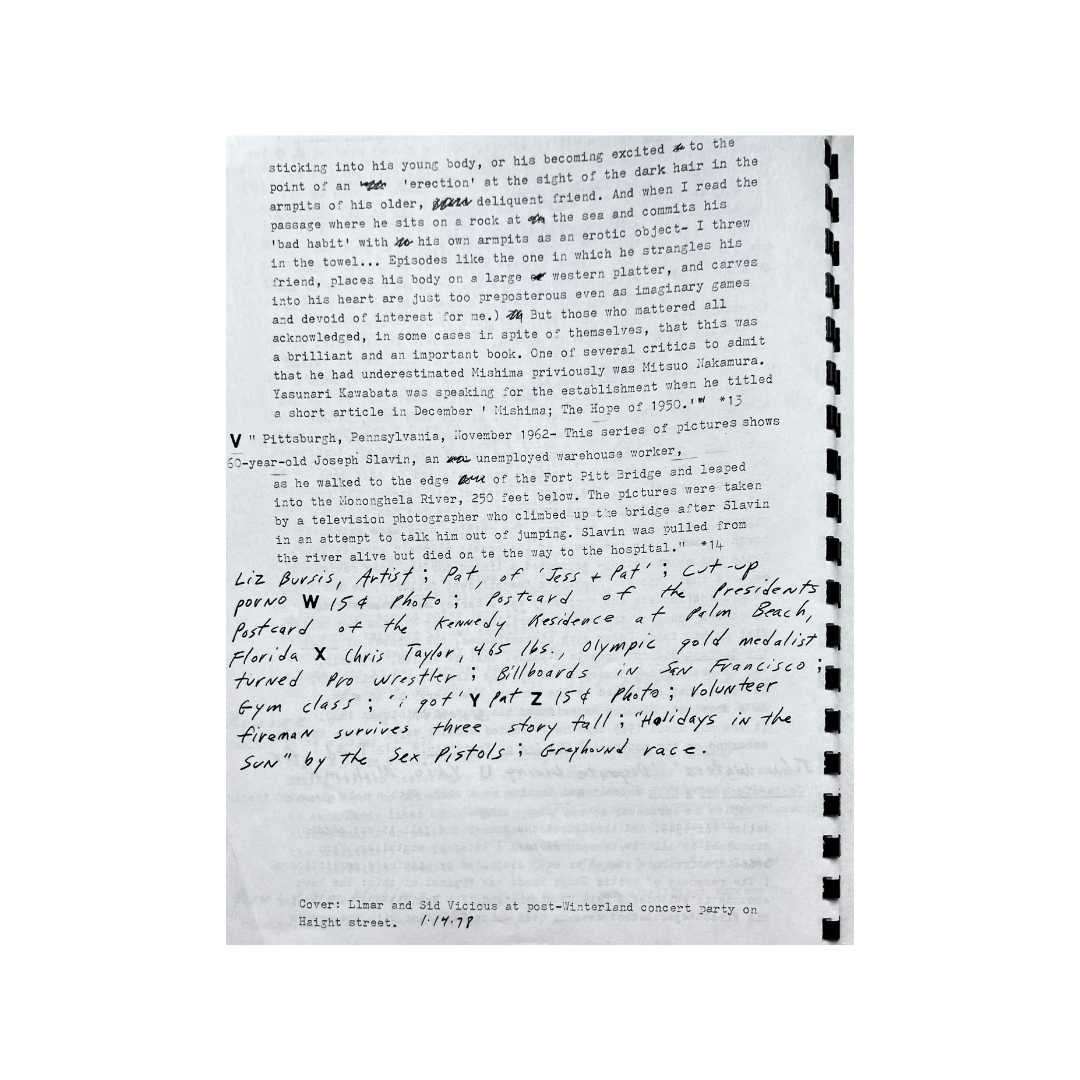 sticking into his young body, or his becoming excited to the
point of an 'erection' at the sight of the dark hair in the
armpits of his older, deliquent friend. And when I read the
passage where he sits on a rock at the sea and commits his
'bad habit' with his own armpits as an erotic object- I threw
in the towel... Episodes like the one in which he strangles his
friend, places his body on a large western platter, and carves
into his heart are just too preposterous even as imaginary games
and devoid of interest for me.) But those who mattered all
acknowledged, in some cases in spite of themselves, that this was
a brilliant and an important book. One of several critics to admit
that he had underestimated Mishima priviously was Mitsuo Nakamura.
Yasunari Kawabata was speaking for the establishment when he titled
a short article in December ' Mishima; The Hope of 1950.'" *13
V " Pittsburgh, Pennsylvania, November 1962- This series of pictures shows
60-year-old Joseph Slavin, an unemployed warehouse worker,
as he walked to the edge of the Fort Pitt Bridge and leaped
into the Mononghela River, 250 feet below. The pictures were taken
by a television photographer who climbed up the bridge after Slavin
in an attempt to talk him out of jumping. Slavin was pulled from
the river alive but died on te the way to the hospital." *14
Liz Bursis, Artist ; Pat, of 'Jess + Pat' ; cut-up
porno W 15¢ Photo ; Postcard of the Presidents
Postcard of the Kennedy Residence at Palm Beach,
Florida X Chris Taylor, 465 lbs., Olympic gold medalist
turned Pro wrestler ; Billboards in San Francisco ;
Gym class ; 'i got' Y Pat Z 15¢ Photo ; Volunteer
fireman survives three story fall ; "Holidays in the
Sun" by the Sex Pistols ; Greyhound race.
Cover: Llmar and Sid Vicious at post-Winterland concert party on
Haight street. 1.14.78